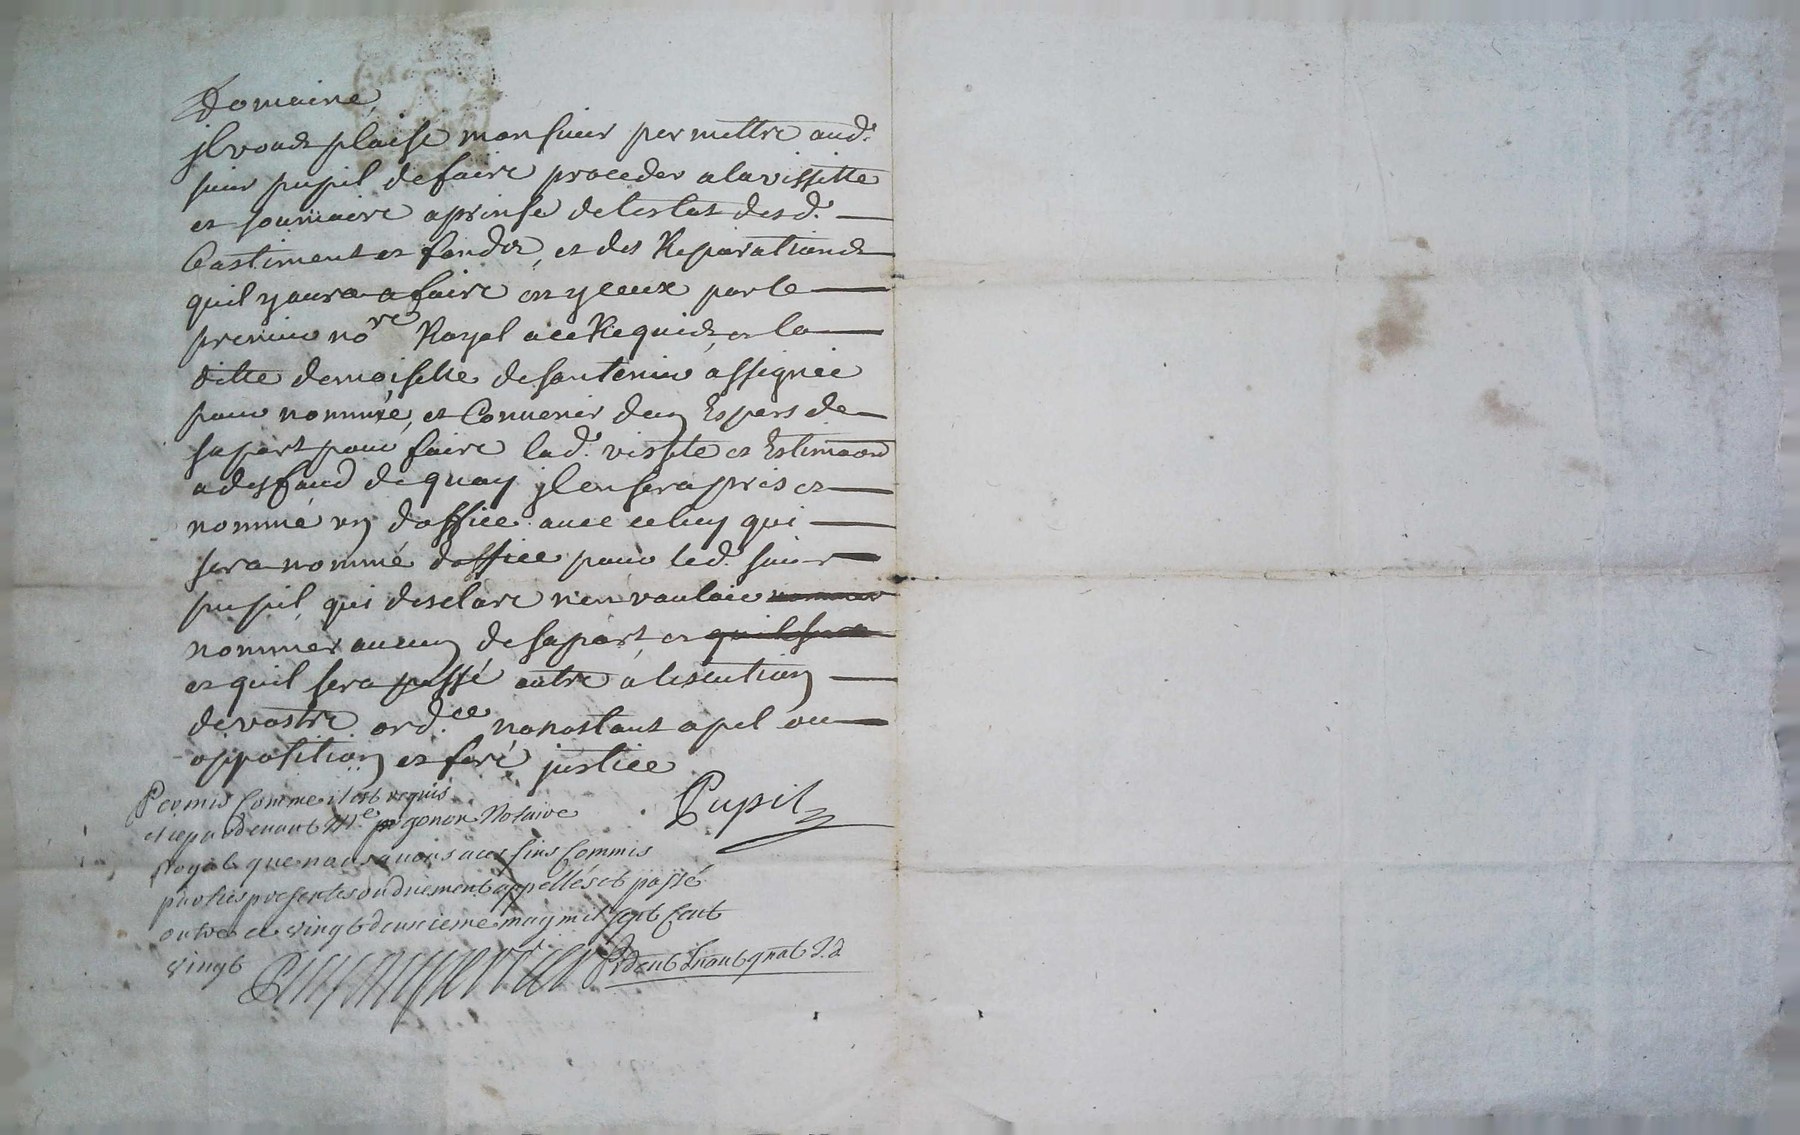 Domaine,
jl vous plaise monsieur permettre aud.
sieur pupil de faire proceder a la vissitte
et sommaire aprinse de lestat desd.
bastiment et fondz, et des Reparationds
quil y aura a faire en yeeux par le
premier no.re Royal a ce Requids, et la
ditte demoiselle assignée
pour nommé, et Convenir dun Expers de
sa part pour faire lad. vissite et Estimaon
a desfaud de quoy jl en sera pris et
nommé un doffice avec celuy qui
sera nommé doffice pour led. sieur
pupil, qui desclare nen vouloir nommer
nommer aucun de sa part, et quil sera
et quil sera passé outre a lexecution
de vostre ord.ce nonostant apel ou
oppotition et feré justice
Pupil
Permis Comme il est requis
et ce pardevant M.e gonon Notaire
Royal que nous avons a ces fins Commis
parties presentes ou duement appellés et passé
outre ce vingt deuxieme may mil sept Cent
vingt